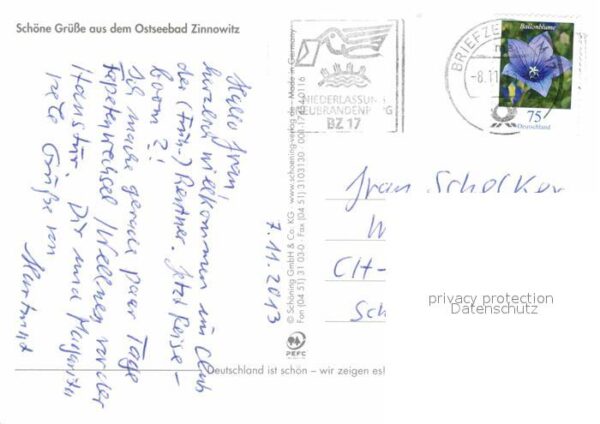 Schöne Grüße aus dem Ostseebad Zinnowitz
Hallo Ivan!
herzlich willkommen im Club
der (Früh-) Rentner. Jetzt Reise-
boom?!
Ich mache gerade paar Tage
/ Wellness vor der
Haustür. Dir und Margarita
rate Grüße von
7.11.2013
© Schöning GmbH & Co. KG · www.schoening-verlag.de – Made in Germany
Fon (04 51) 31 03-0 · Fax (04 51) 3103130
PEFC
Deutschland ist schön – wir zeigen es!
NIEDERLASSUNG
NEUBRANDENBURG
BZ 17
BRIEFZE
-8.11
Ballonblume
75
Deutschland
Ivan
W
CH-
Sch
privacy protection
Datenschutz